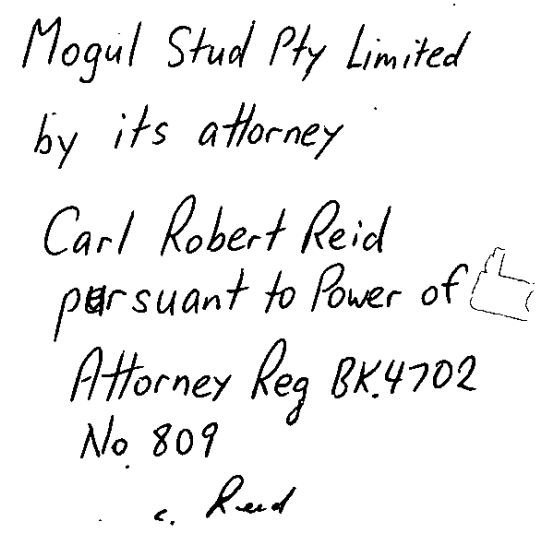 Mogul Stud Pty Limited
by its attorney
Carl Robert Reid
pursuant to Power of
Attorney Reg BK.4702
No. 809
c. Reid